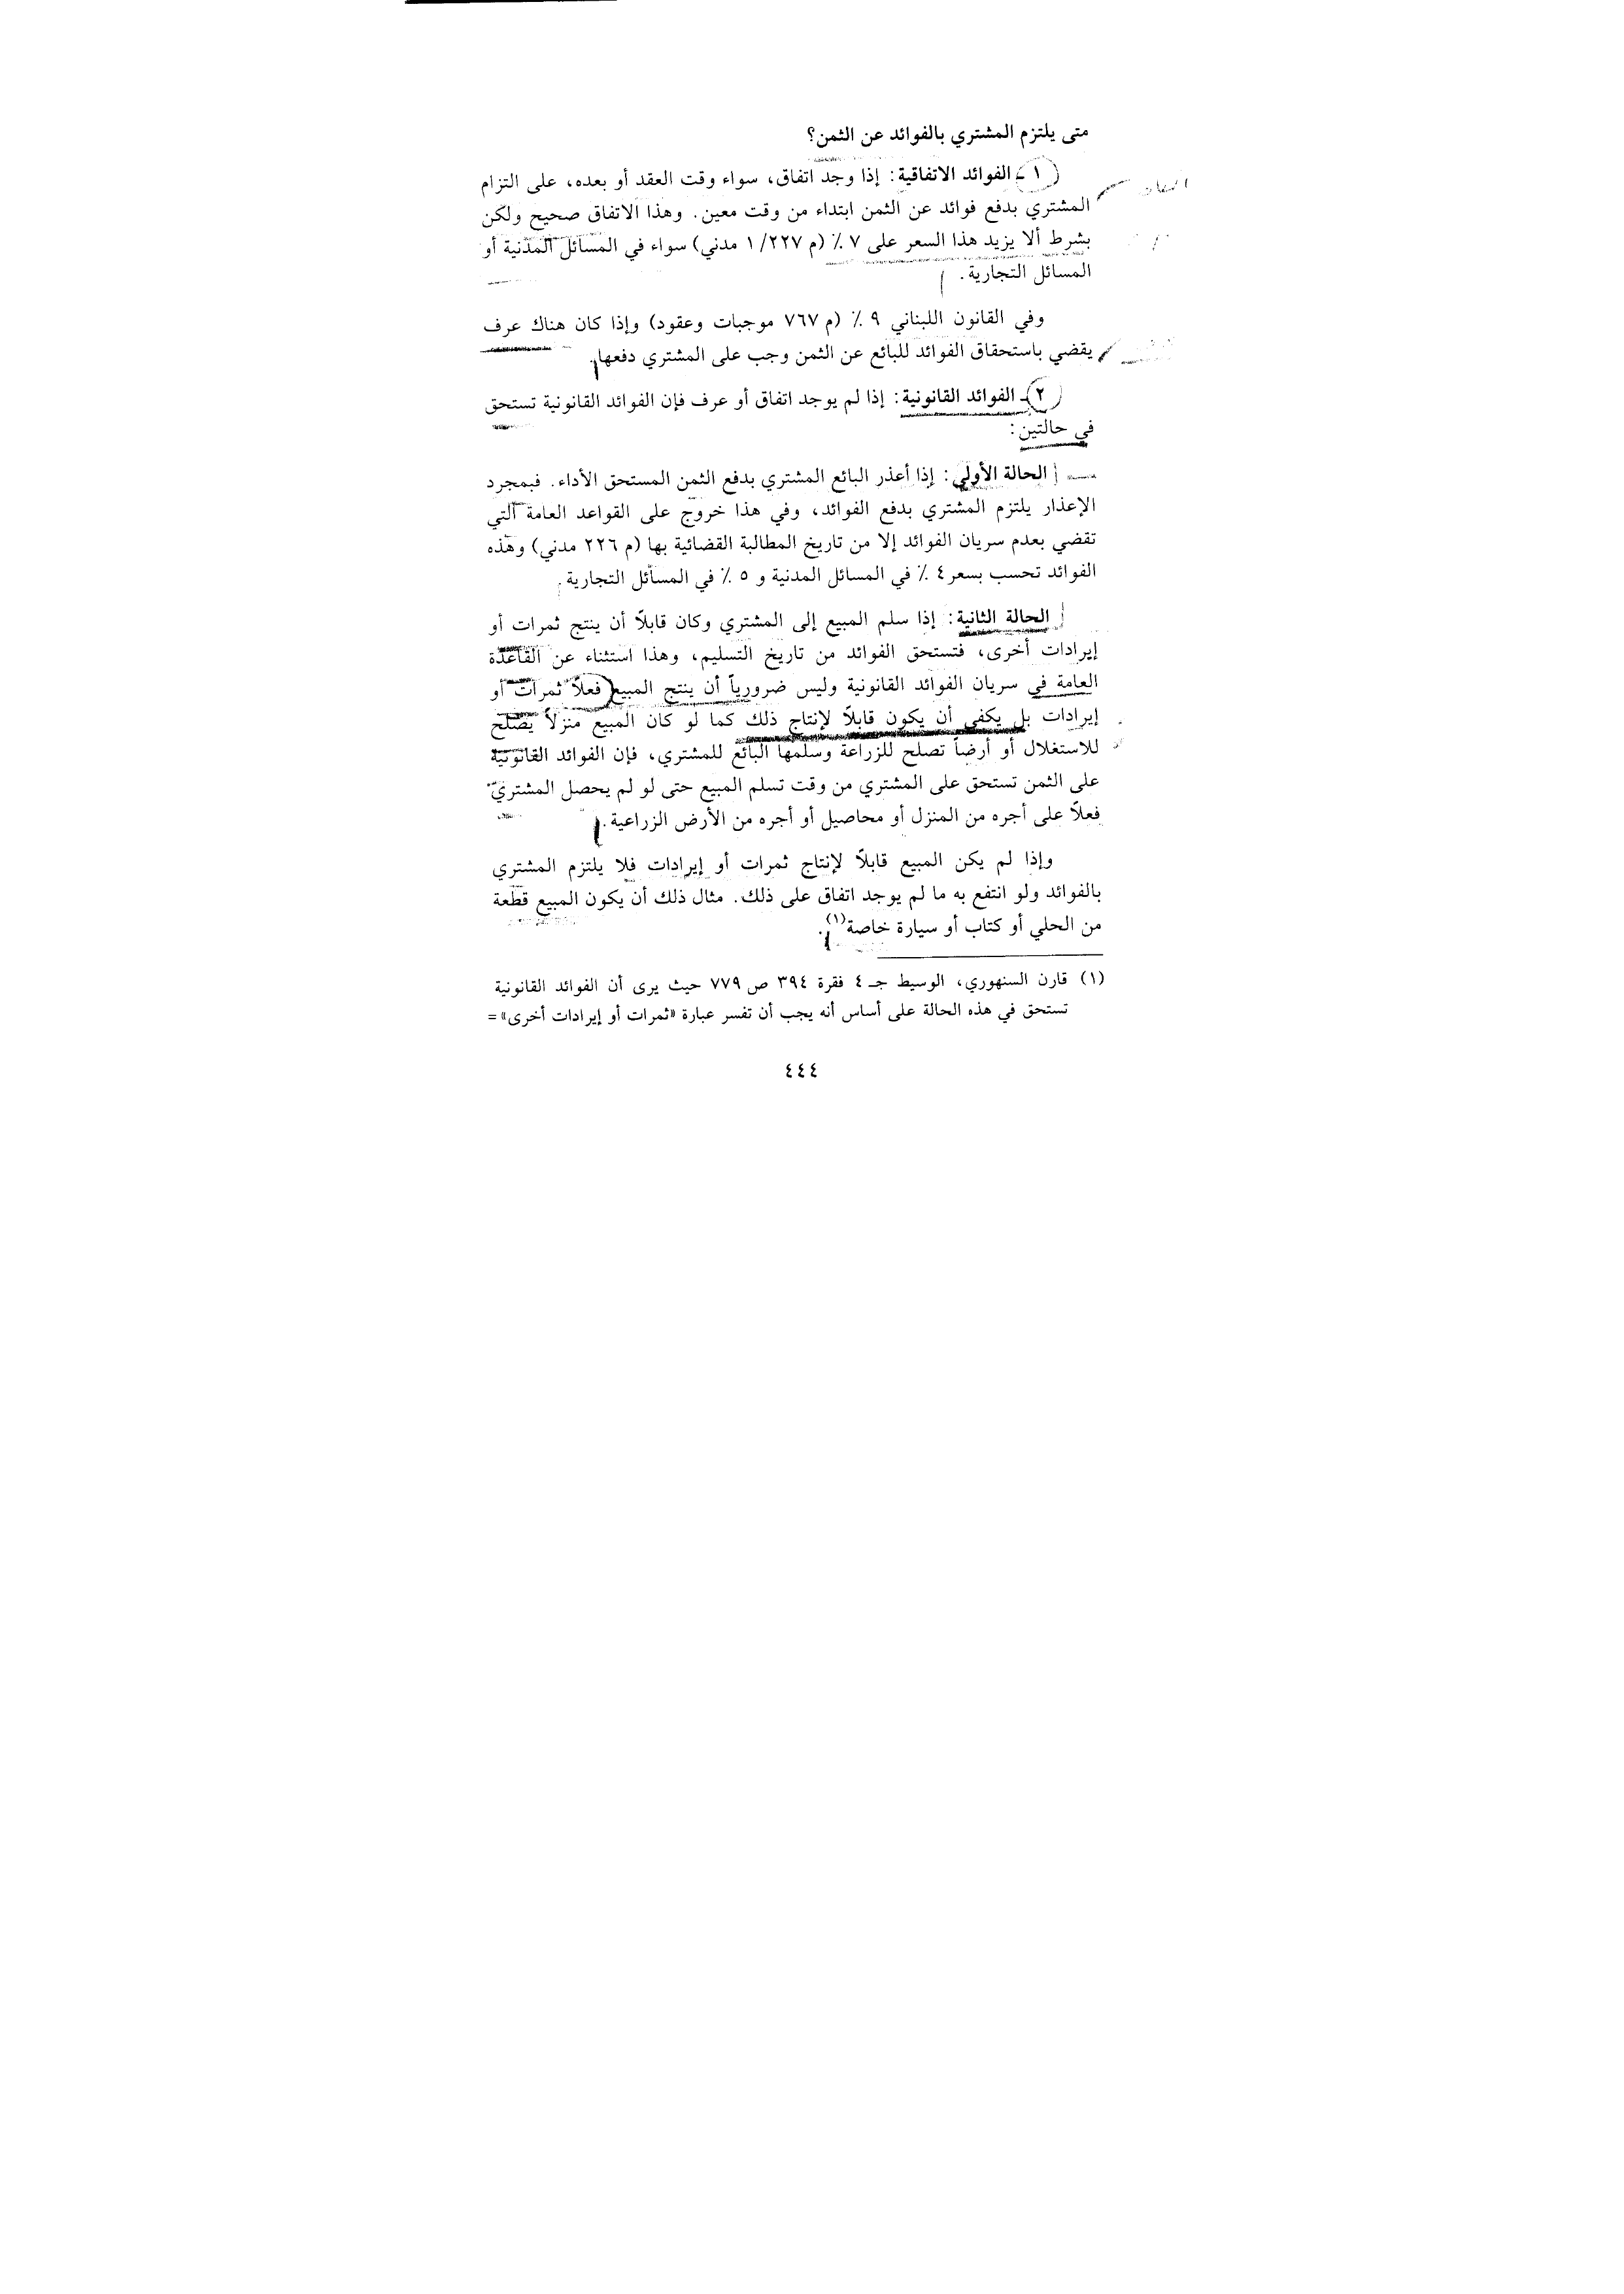 متى يلتزم المشتري بالفوائد عن الثمن؟
١ - الفوائد الاتفاقية: إذا وجد اتفاق، سواء وقت العقد أو بعده، على التزام
المشتري بدفع فوائد عن الثمن ابتداء من وقت معين. وهذا الاتفاق صحيح ولكن
بشرط ألا يزيد هذا السعر على ٧٪ (م ١/٢٢٧ مدني) سواء في المسائل المدنية أو
المسائل التجارية.
وفي القانون اللبناني ٩٪ (م ٧٦٧ موجبات وعقود) وإذا كان هناك عرف
يقضي باستحقاق الفوائد للبائع عن الثمن وجب على المشتري دفعها.
٢ - الفوائد القانونية: إذا لم يوجد اتفاق أو عرف فإن الفوائد القانونية تستحق
في حالتين:
الحالة الأولى: إذا أعذر البائع المشتري بدفع الثمن المستحق الأداء. فبمجرد
الإعذار يلتزم المشتري بدفع الفوائد، وفي هذا خروج على القواعد العامة التي
تقضي بعدم سريان الفوائد إلا من تاريخ المطالبة القضائية بها (م ٢٢٦ مدني) وهذه
الفوائد تحسب بسعر ٤٪ في المسائل المدنية و ٥٪ في المسائل التجارية.
الحالة الثانية: إذا سلم المبيع إلى المشتري وكان قابلاً أن ينتج ثمرات أو
إيرادات أخرى، فتستحق الفوائد من تاريخ التسليم، وهذا استثناء عن القاعدة
العامة في سريان الفوائد القانونية وليس ضرورياً أن ينتج المبيع فعلاً ثمرات أو
إيرادات بل يكفي أن يكون قابلاً لإنتاج ذلك كما لو كان المبيع منزلاً يصلح
للاستغلال أو أرضاً تصلح للزراعة وسلمها البائع للمشتري، فإن الفوائد القانونية
على الثمن تستحق على المشتري من وقت تسلم المبيع حتى لو لم يحصل المشتري
فعلاً على أجره من المنزل أو محاصيل أو أجره من الأرض الزراعية.
وإذا لم يكن المبيع قابلاً لإنتاج ثمرات أو إيرادات فلا يلتزم المشتري
بالفوائد ولو انتفع به ما لم يوجد اتفاق على ذلك. مثال ذلك أن يكون المبيع قطعة
من الحلي أو كتاب أو سيارة خاصة(١).
(١) قارن السنهوري، الوسيط جـ ٤ فقرة ٣٩٤ ص ٧٧٩ حيث يرى أن الفوائد القانونية
تستحق في هذه الحالة على أساس أنه يجب أن تفسر عبارة «ثمرات أو إيرادات أخرى» =
٤٤٤